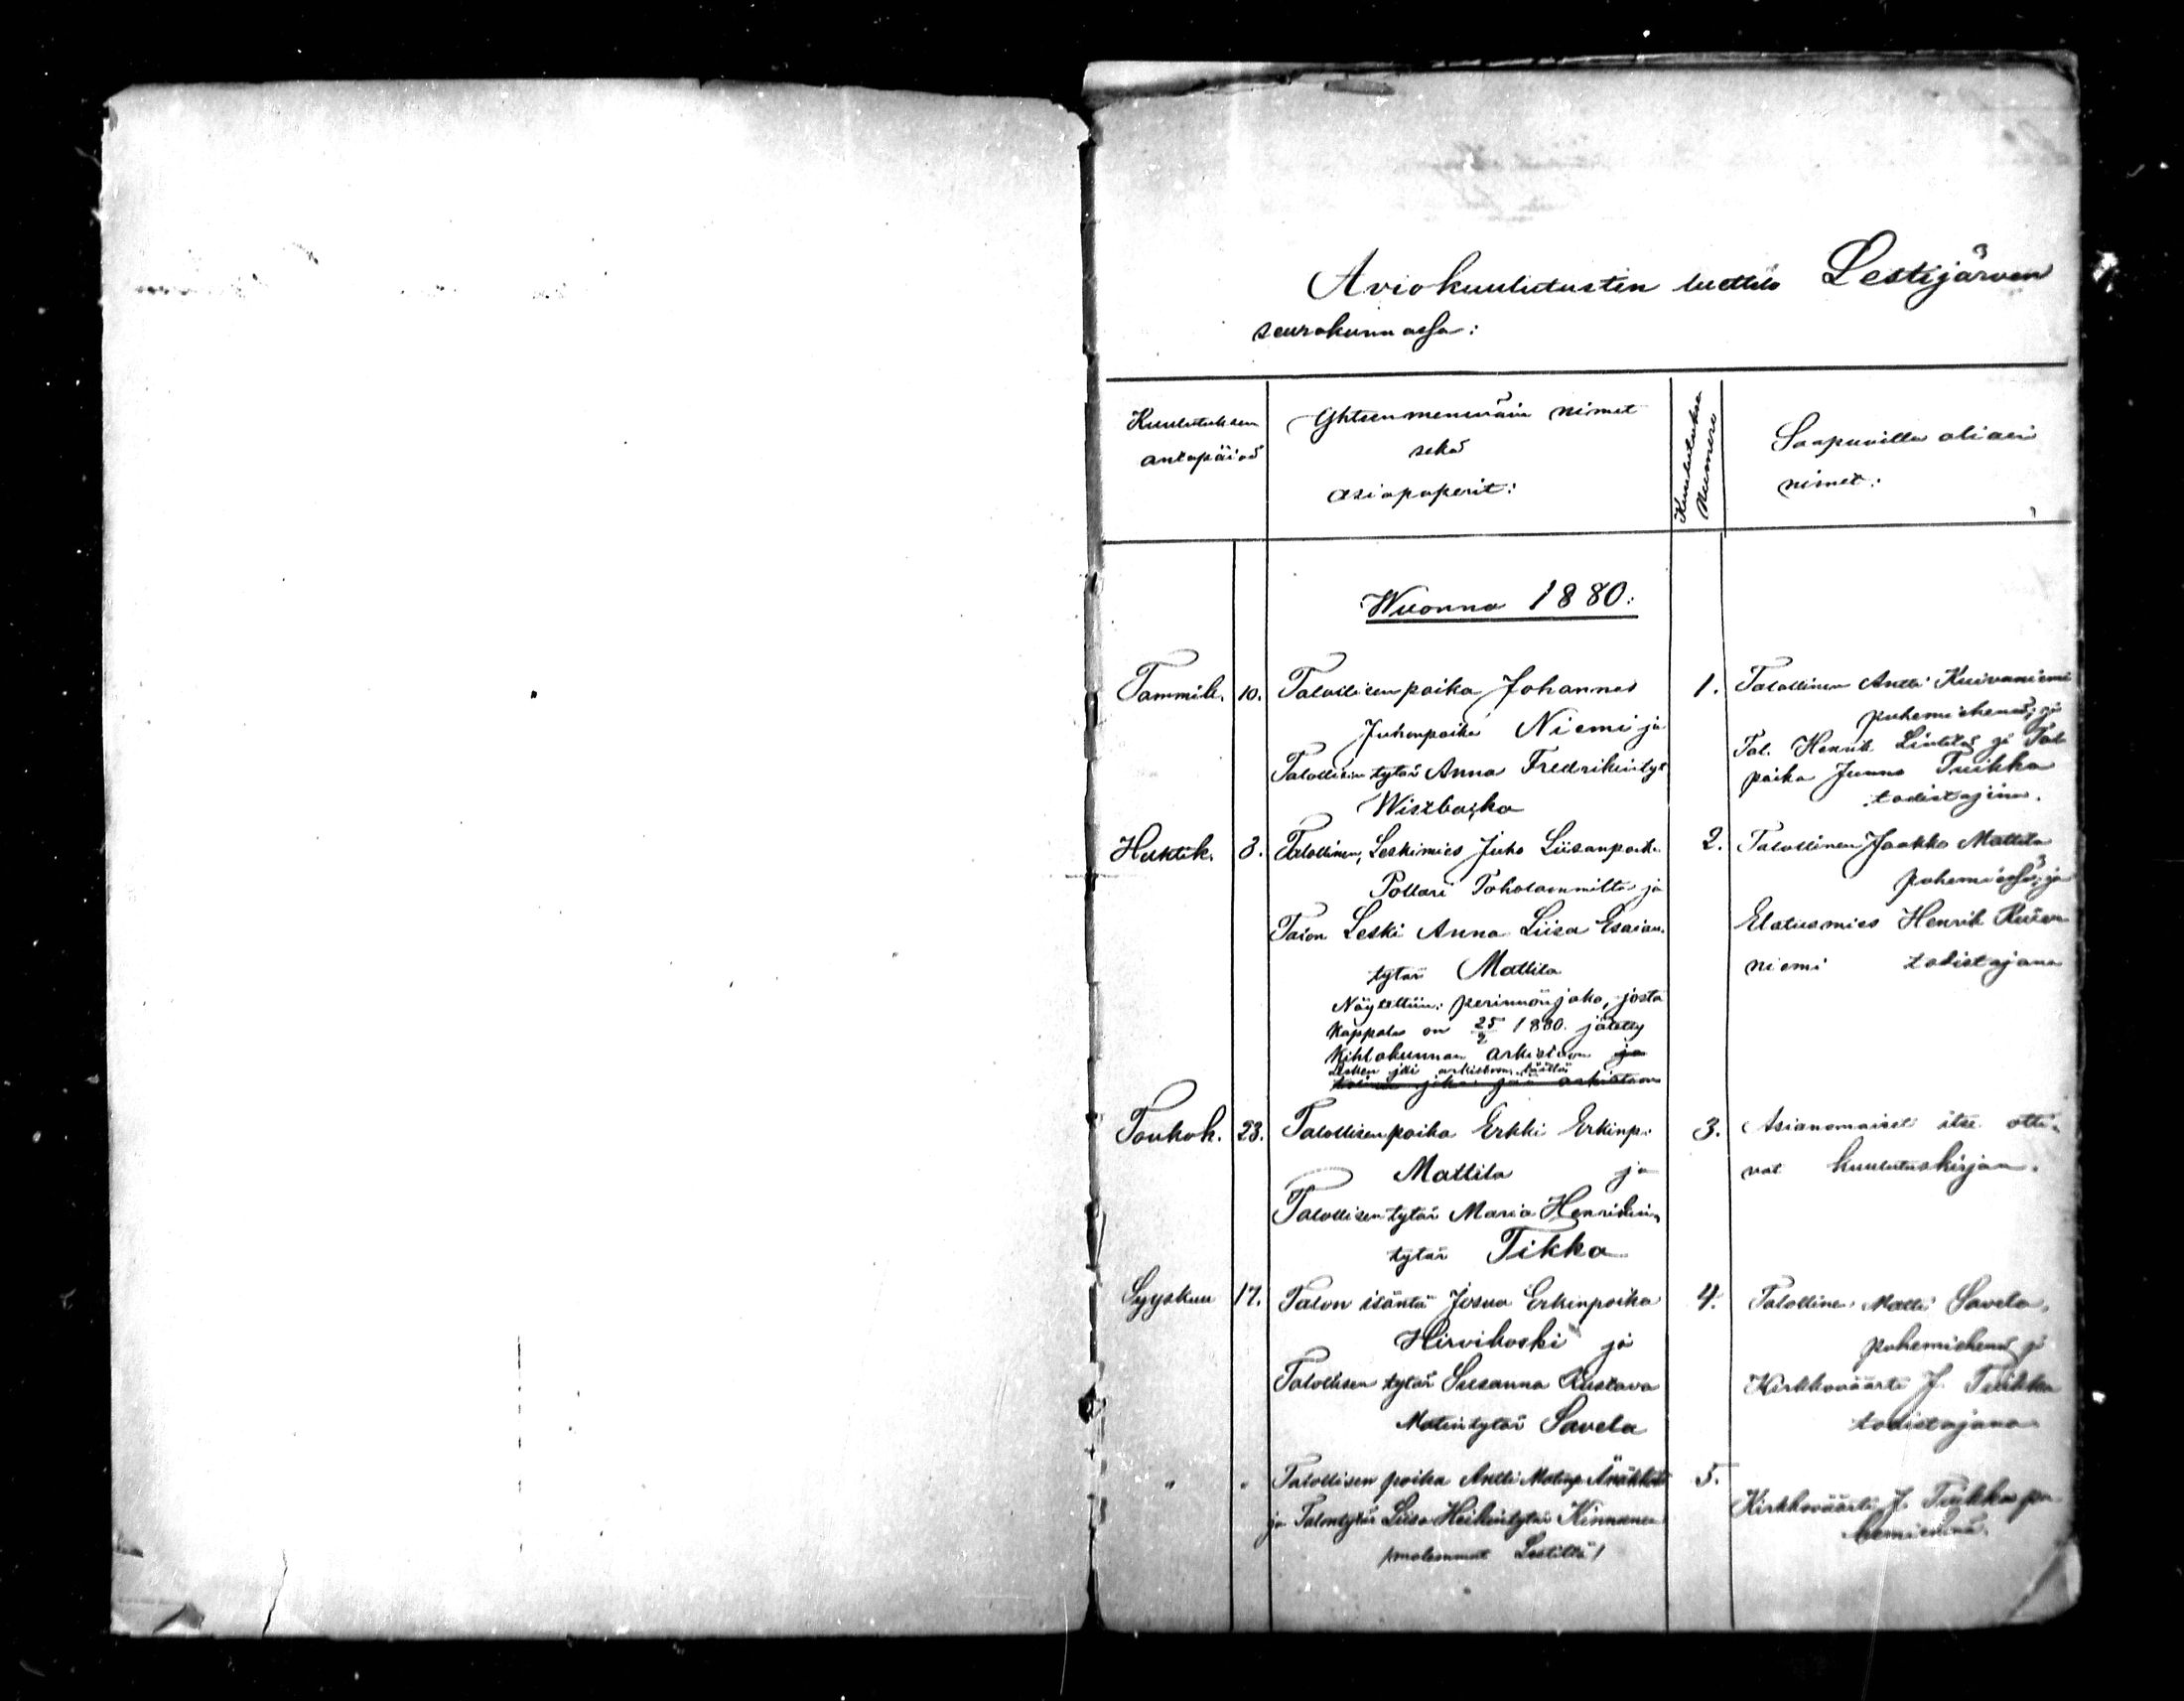 Aviokuulutusten luettelo Lestijärven
seurakunnassa:
Kuulutuksen
antopäivä
Yhteenmeneväin nimet
sekä
asiapaperit:
Kuulutuksen
Numero
Saapuvilla olian
nimet:
Wuonna 1880:
Tammik. 10. Talollisenpoika Johannes 1. Talollinen Antti Kuivaniemi
Juhonpoika Niemi ja puhemiehenä, ja
Tal. Henrik Lintilä ja Tal.
Talollisen tytär Anna Fredrikintyt.
poika Junno Tuikka
Wiszbacka todistajina.
Huhtik. 3. Talollinen, Leskimies Juho Liisanpoika 2. Talollinen Jaakko Mattila
Pollari Toholammilta ja puhemiessä, ja
Talon Leski Anna Liisa Esaian- Elatusmies Henrik
tytär Mattila niemi todistajana
Näytettiin: perinnönjako, josta
kappale on 25/2 1880. jätetty
Kihlakunnan arkistoon ja
jäi arkistoon täällä
arkistoon
Toukok. 23. Talollisenpoika Erkki Erkinp. 3. Asianomaiset itse otti-
Mattila ja vat kuulutuskirjan.
Talollisen tytär Maria Henrikin
tytär Tikka
Syyskuu 17. Talon isäntä Josua Erkinpoika 4. Talollinen Matti Savela,
Hirvikoski ja puhemiehenä ja
Talollisen tytär Susanna Kustava Kirkkoväärti J. Tuikka
Matintytär Savela todistajana
" " Talollisen poika Antti Matinp. 5.
Kirkkoväärti J. Tuikka pu-
ja Talontytär Liisa Heikintytär Kinnunen
hemiehenä.
(molemmat Lestiltä)